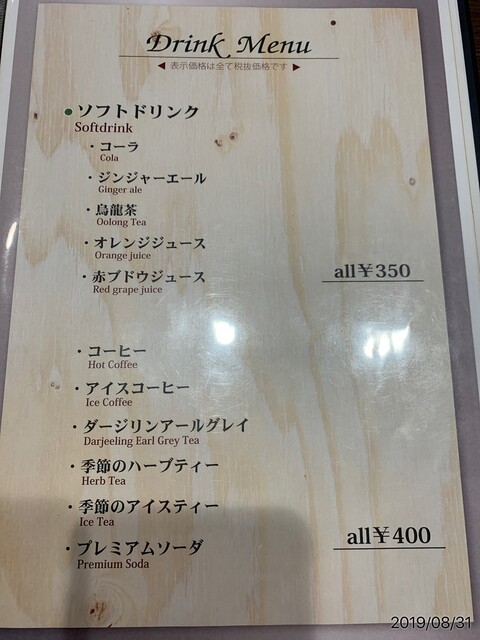 Drink Menu
◀ 表示価格は全て税抜価格です ▶
●ソフトドリンク
Softdrink
・コーラ
Cola
・ジンジャーエール
Ginger ale
・烏龍茶
Oolong Tea
・オレンジジュース
Orange juice
・赤ブドウジュース
Red grape juice
all¥350
・コーヒー
Hot Coffee
・アイスコーヒー
Ice Coffee
・ダージリンアールグレイ
Darjeeling Earl Grey Tea
・季節のハーブティー
Herb Tea
・季節のアイスティー
Ice Tea
・プレミアムソーダ
Premium Soda
all¥400
2019/08/31